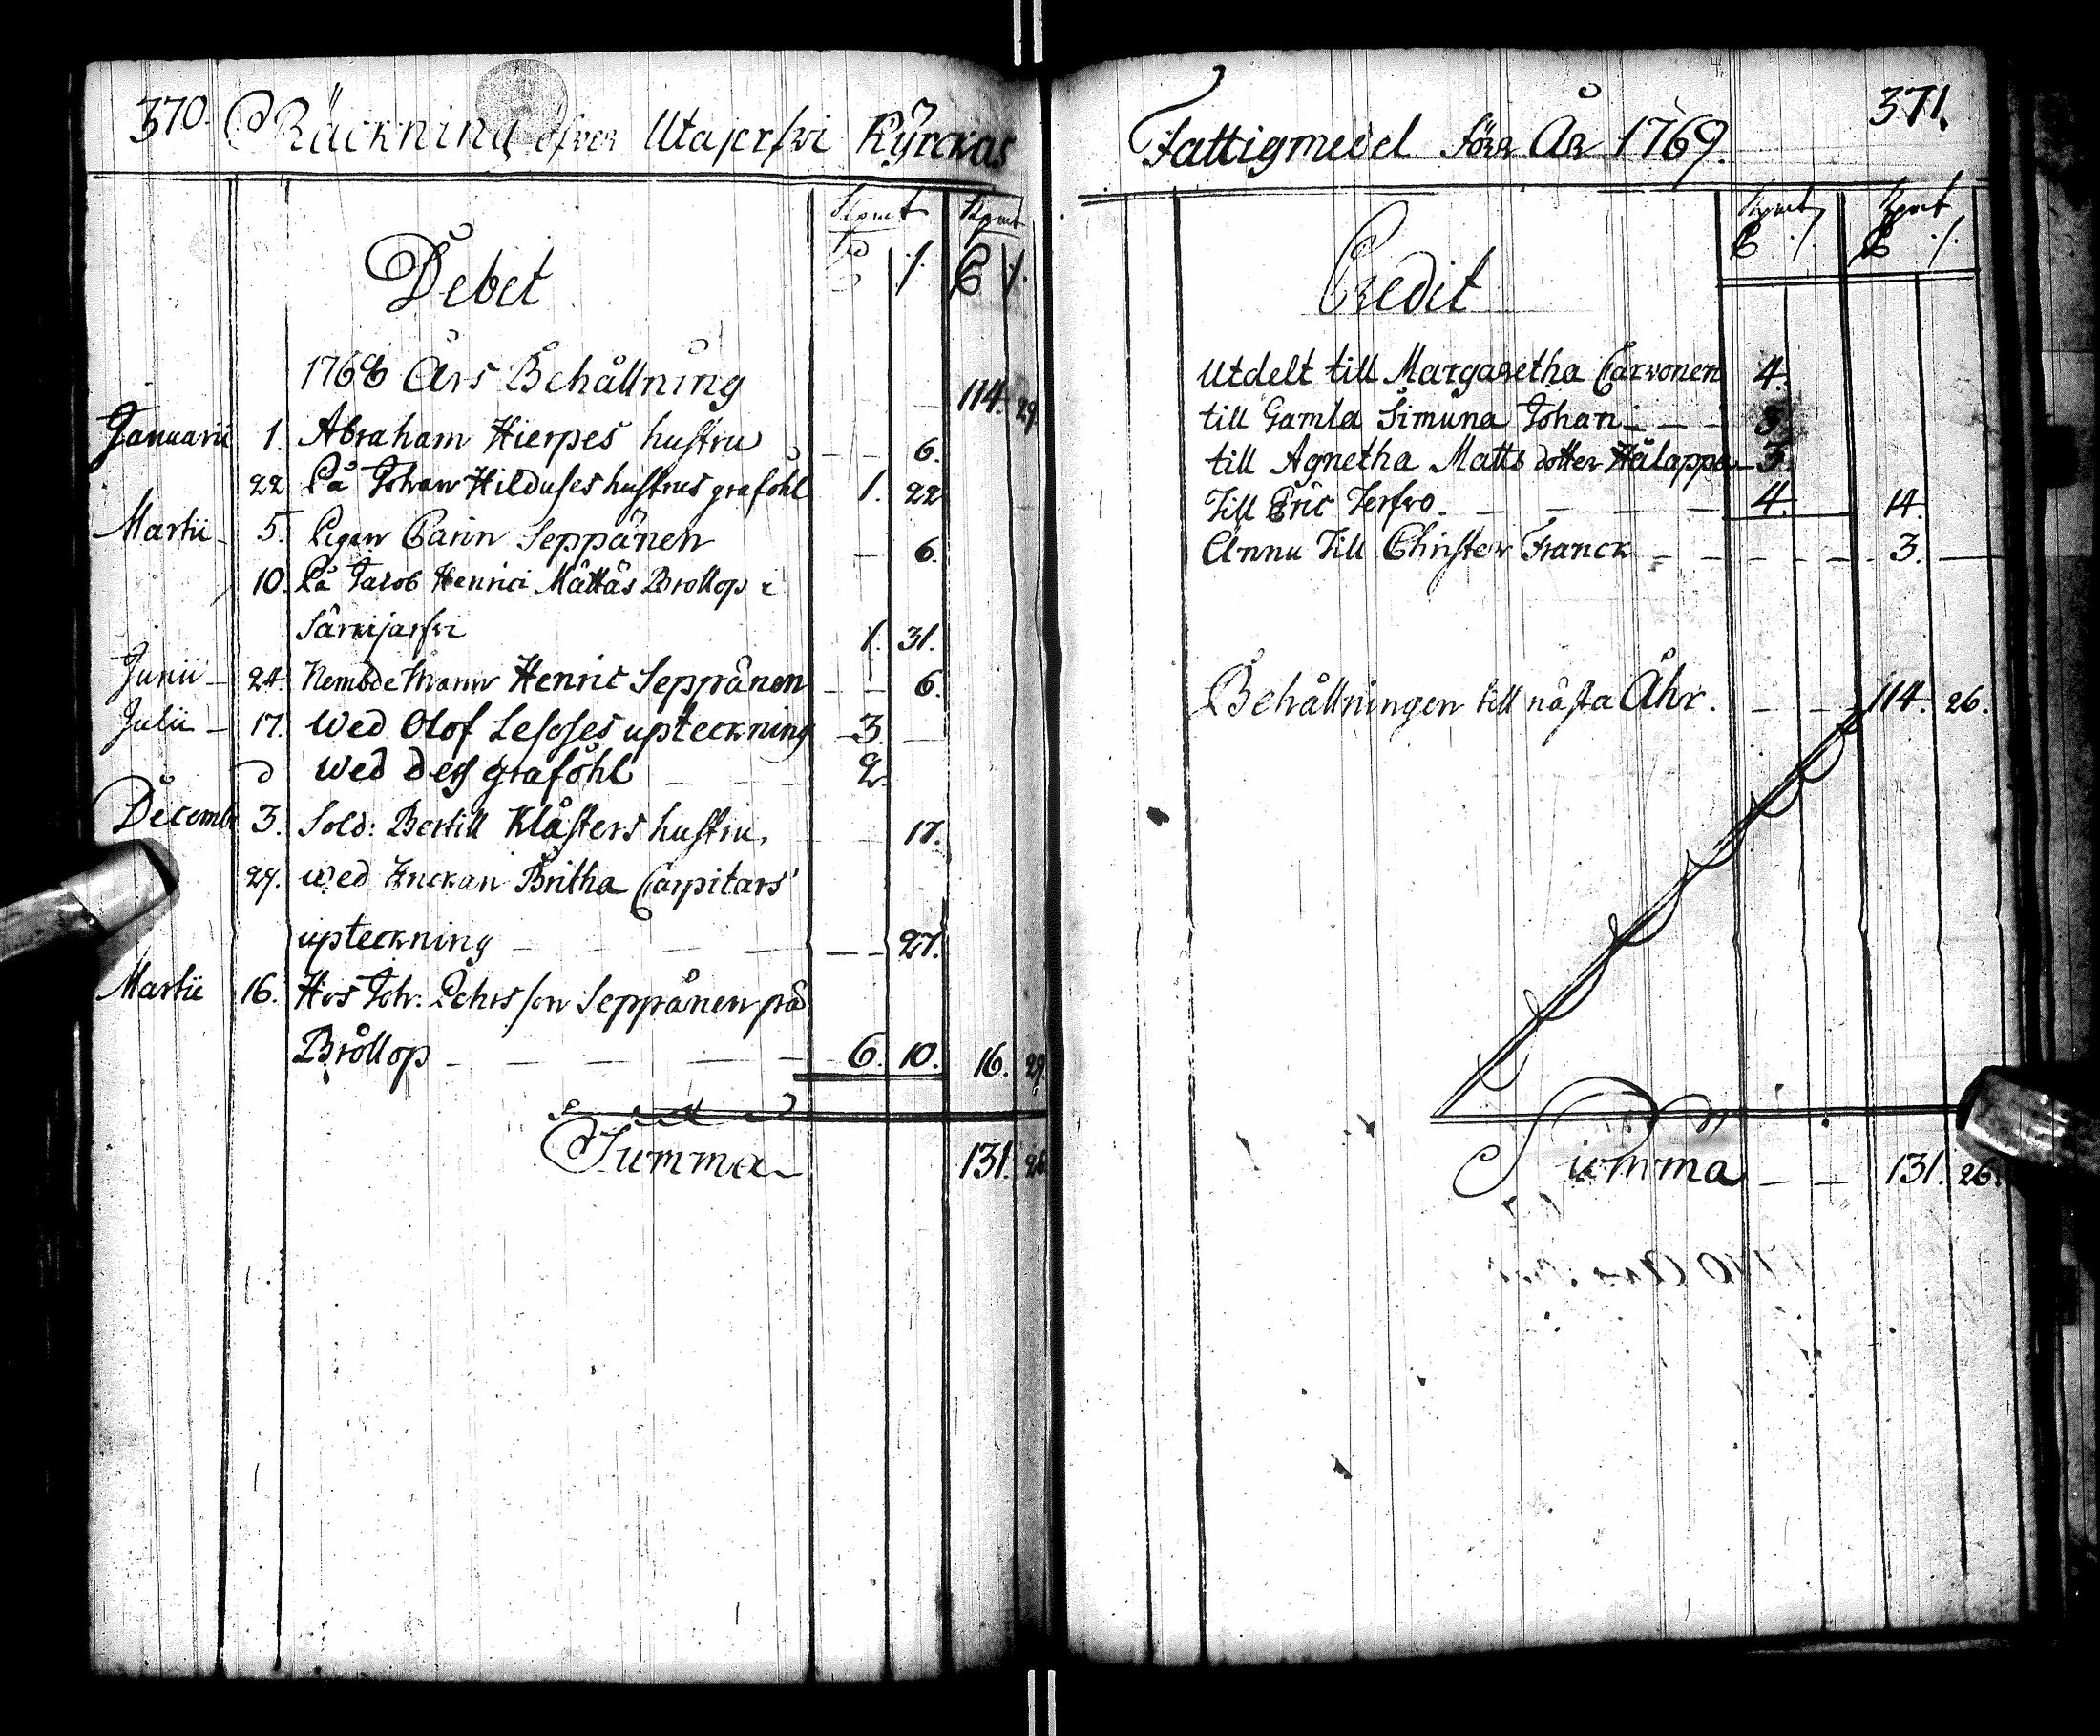 370. Räckning öfver Utajerfwi Kÿrckas
Kpmt Kpmt
Debet
1768 Års Behållning 114. 29.
Januarii 1. Abraham Hierpes hustru — — 6.
22 På Johan Hilduses hustrus grafôhl 1. 22
Martii — 5. Pigan Carin Seppånen — 6.
10. På Jacob Henrici Måttås Brollop i
Särkijärfwi 1. 31.
Junii — 24. Nembdeman Henric Seppånen — — 6.
Julii — 17. Wed Olof Lesoses upteckning 3. —
d Wed dess grafôhl — — — 2.
Decembr 3. Sold: Bertill Klåsters hustru. — — 17.
29. Wed Enckan Britha Carpitars
upteckning — — — — — 27.
Martii 16. Hos Joh: Pehrsson Seppånen på
Bröllop — — — — — 6. 10. 16. 29.
Summa 131. 26
Fattigmedel förr År 1769. 371.
Kpmt Kpmt
Credit
Utdelt till Margaretha Carvonen 4.
till Gamla Simuna Johan — — — 3.
till Agnetha Matts dotter Hålappa — 3.
Till Eric Jerfwo. — — — — — 4. 14.
Ännu Till Christer Franck — — — — — — 3. —
Behållningen till nåsta Åhr. — — — 114. 26.
Summa — — 131. 26.